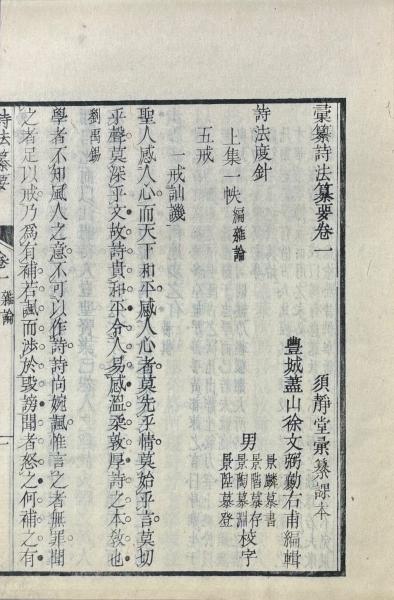 彙纂詩法纂要卷一
須靜堂彙纂課本
豐城蓋山徐文弼勷右甫編輯
男
景麟慕書
景階慕存
景陶慕淵
景陛慕登
校字
詩法度針
上集一帙 編雜論
五戒
一戒訕譏
聖人感人心而天下和平感人心者莫先乎情莫始乎言莫切
乎聲莫深乎文故詩貴和平令人易感溫柔敦厚詩之本敎也
劉禹錫
學者不知風人之意不可以作詩詩尚婉諷惟言之者無罪聞
之者足以戒乃爲有補若諷而涉於毀謗聞者怒之何補之有
詩法纂要
卷一 雜論
一